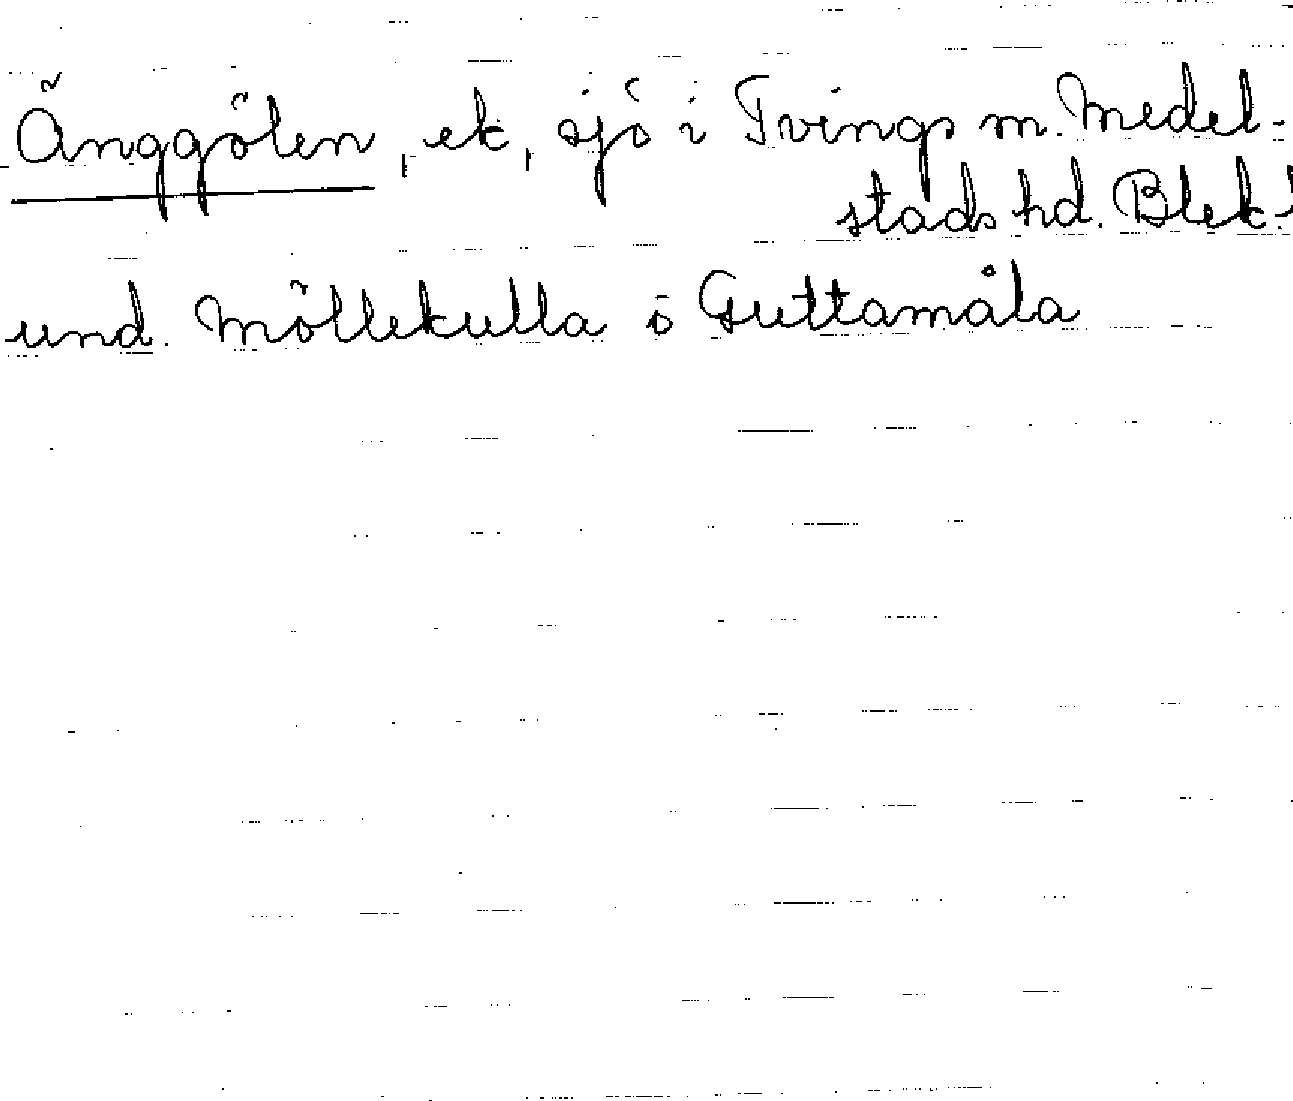 Änggölen, ek, sjö i Tvings m. Medel-
stads hd. Blek.
und. Möllekulla o Guttamåla